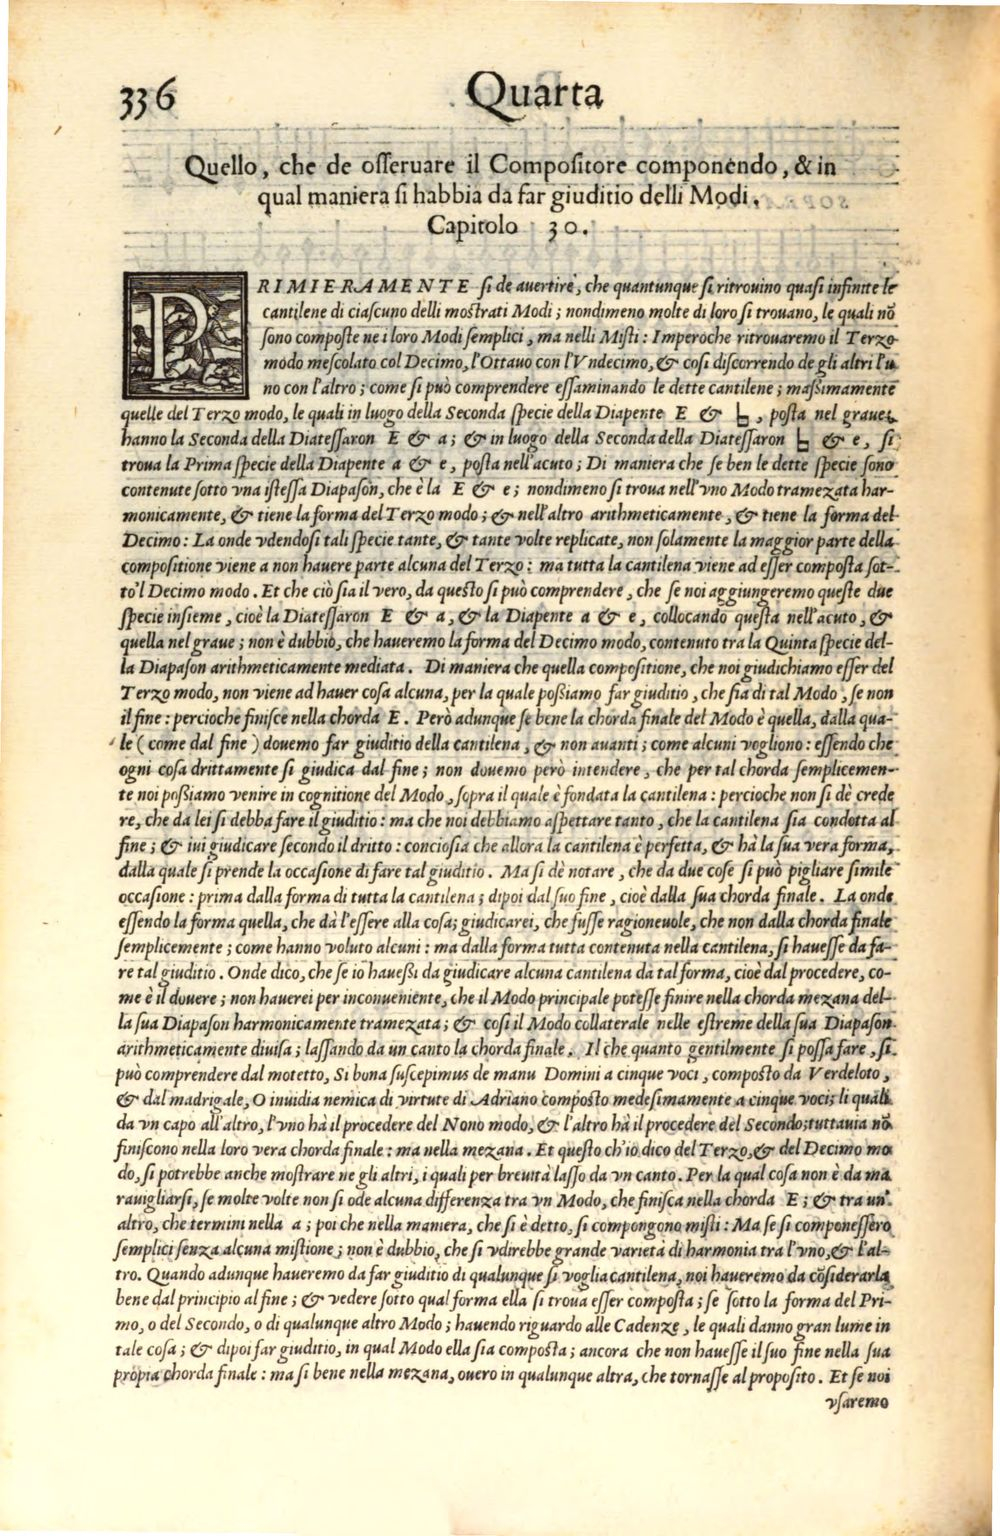 336
Quarta
Quello, che de osseruare il Compositore componendo, & in
qual maniera si habbia da far giuditio delli Modi.
Capitolo 30.
PRIMIERAMENTE si de auertire, che quantunque si ritrouino quasi infinite le
cantilene di ciascuno delli mostrati Modi; nondimeno molte di loro si trouano, le quali nõ
sono composte ne i loro Modi semplici, ma nelli Misti: Imperoche ritrouaremo il Terzo
modo mescolato col Decimo, l'Ottauo con l'Vndecimo, & cosi discorrendo de gli altri l'u
no con l'altro; come si può comprendere essaminando le dette cantilene; massimamente
quelle del Terzo modo, le quali in luogo della Seconda specie della Diapente E & ♮, posta nel graue;
hanno la Seconda della Diatessaron E & a; & in luogo della Seconda della Diatessaron ♮ & e, si
troua la Prima specie della Diapente a & e, posta nell'acuto; Di maniera che se ben le dette specie sono
contenute sotto vna istessa Diapason, che è la E & e; nondimeno si troua nell'vno Modo tramezata har-
monicamente, & tiene la forma del Terzo modo; & nell'altro arithmeticamente, & tiene la forma del
Decimo: La onde vdendosi tali specie tante, & tante volte replicate, non solamente la maggior parte della
compositione viene a non hauere parte alcuna del Terzo: ma tutta la cantilena viene ad esser composta sot-
to'l Decimo modo. Et che ciò sia il vero, da questo si può comprendere, che se noi aggiungeremo queste due
specie insieme, cioè la Diatessaron E & a, & la Diapente a & e, collocando questa nell'acuto, &
quella nel graue; non è dubbio, che haueremo la forma del Decimo modo, contenuto tra la Quinta specie del-
la Diapason arithmeticamente mediata. Di maniera che quella compositione, che noi giudichiamo esser del
Terzo modo, non viene ad hauer cosa alcuna, per la quale possiamo far giuditio, che sia di tal Modo, se non
il fine: percioche finisce nella chorda E. Però adunque se bene la chorda finale del Modo è quella, dalla qua-
le (come dal fine) douemo far giuditio della cantilena, & non auanti; come alcuni vogliono: essendo che
ogni cosa drittamente si giudica dal fine; non douemo però intendere, che per tal chorda semplicemen-
te noi possiamo venire in cognitione del Modo, sopra il quale è fondata la cantilena: percioche non si dè crede
re, che da lei si debba fare il giuditio: ma che noi debbiamo aspettare tanto, che la cantilena sia condotta al
fine; & iui giudicare secondo il dritto: conciosia che allora la cantilena è perfetta, & hà la sua vera forma,
dalla quale si prende la occasione di fare tal giuditio. Ma si dè notare, che da due cose si può pigliare simile
occasione: prima dalla forma di tutta la cantilena; dipoi dal suo fine, cioè dalla sua chorda finale. La onde
essendo la forma quella, che dà l'essere alla cosa; giudicarei, che fusse ragioneuole, che non dalla chorda finale
semplicemente; come hanno voluto alcuni: ma dalla forma tutta contenuta nella cantilena, si hauesse da fa-
re tal giuditio. Onde dico, che se io hauessi da giudicare alcuna cantilena da tal forma, cioè dal procedere, co-
me è il douere; non hauerei per inconueniente, che il Modo principale potesse finire nella chorda mezana del-
la sua Diapason harmonicamente tramezata; & cosi il Modo collaterale nelle estreme della sua Diapason
arithmeticamente diuisa; lassando da un canto la chorda finale. Il che quanto gentilmente si possa fare, si
può comprendere dal motetto, Si bona suscepimus de manu Domini a cinque voci, composto da Verdeloto,
& dal madrigale, O inuidia nemica di virtute di Adriano composto medesimamente a cinque voci; li quali
da vn capo all'altro, l'vno hà il procedere del Nono modo, & l'altro hà il procedere del Secondo; tuttauia nõ
finiscono nella loro vera chorda finale: ma nella mezana. Et questo ch'io dico del Terzo, & del Decimo mo
do, si potrebbe anche mostrare ne gli altri, i quali per breuità lasso da vn canto. Per la qual cosa non è da ma
rauigliarsi, se molte volte non si ode alcuna differenza tra vn Modo, che finisca nella chorda E; & tra un'
altro, che termini nella a; poi che nella maniera, che si è detto, si compongono misti: Ma se si componessero
semplici senza alcuna mistione; non è dubbio, che si vdirebbe grande varietà di harmonia tra l'vno, & l'al-
tro. Quando adunque haueremo da far giuditio di qualunque si voglia cantilena, noi haueremo da cõsiderarla
bene dal principio al fine; & vedere sotto qual forma ella si troua esser composta; se sotto la forma del Pri-
mo, o del Secondo, o di qualunque altro Modo; hauendo riguardo alle Cadenze, le quali danno gran lume in
tale cosa; & dipoi far giuditio, in qual Modo ella sia composta; ancora che non hauesse il suo fine nella sua
propia chorda finale: ma si bene nella mezana, ouero in qualunque altra, che tornasse al proposito. Et se noi
vsaremo